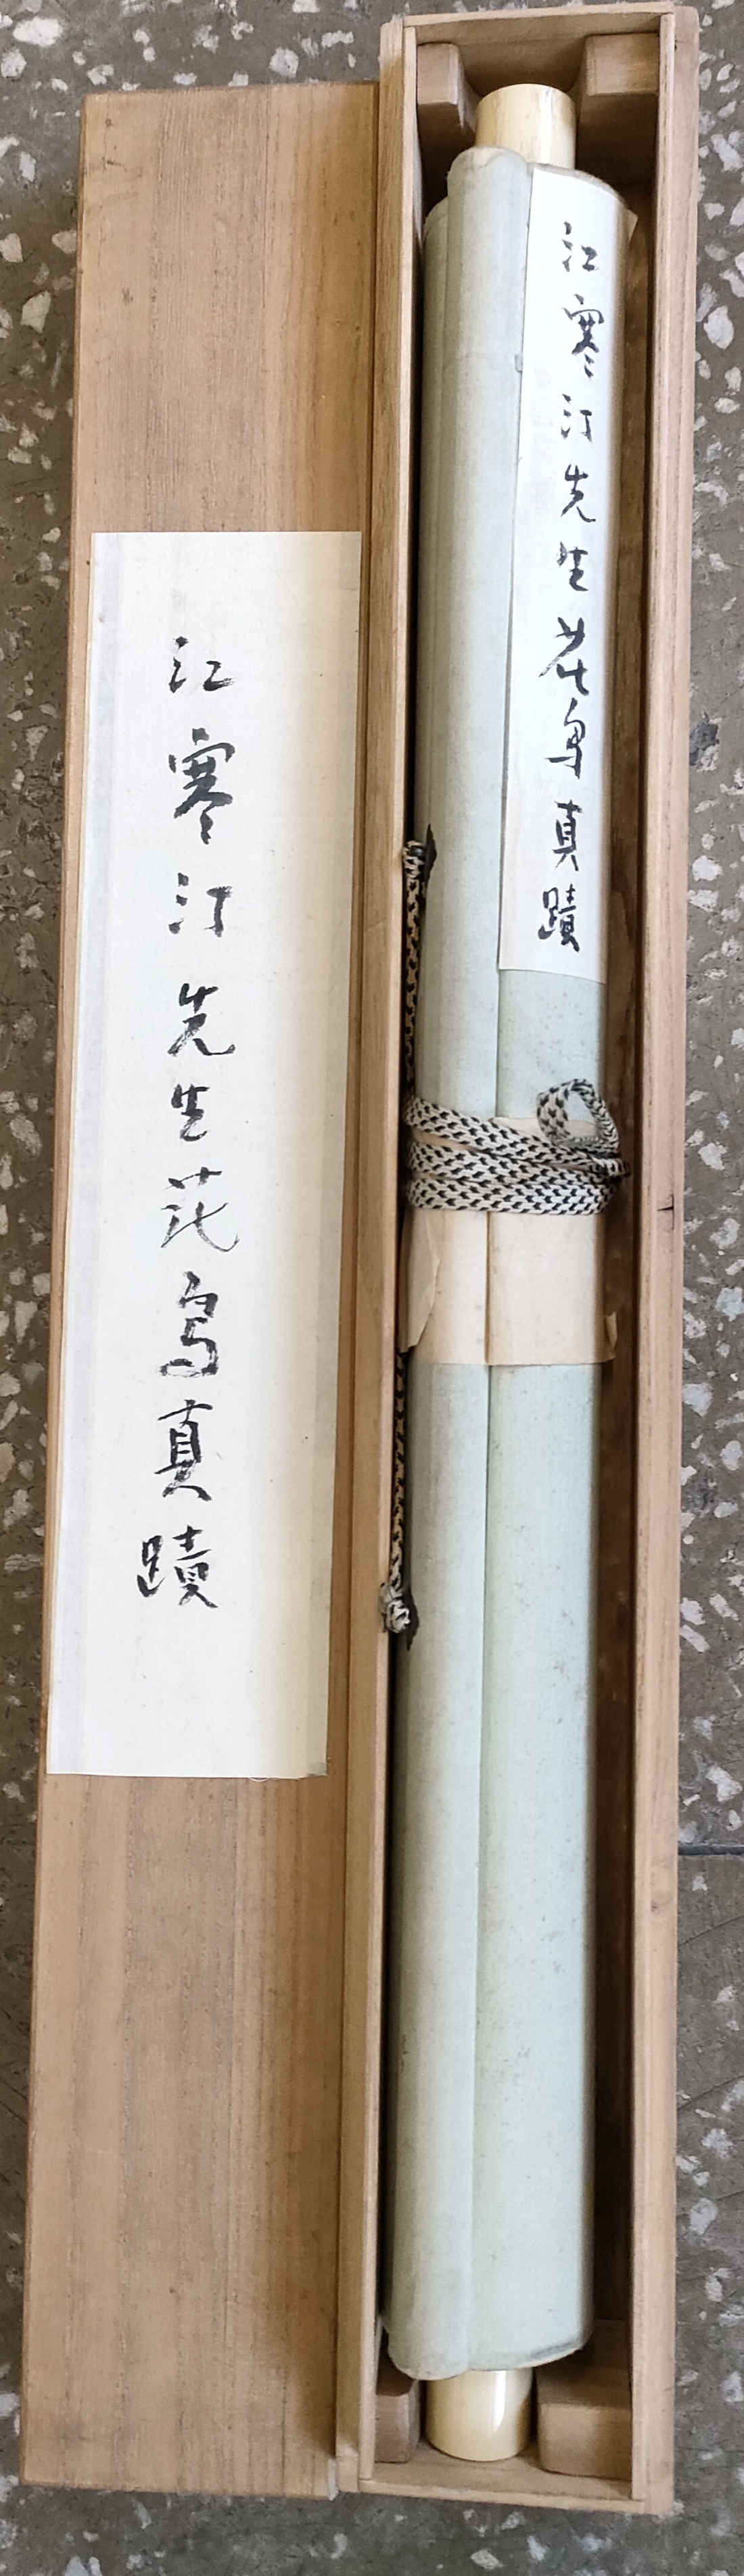 江寒汀先生花鳥真蹟
江寒汀先生花鳥真蹟